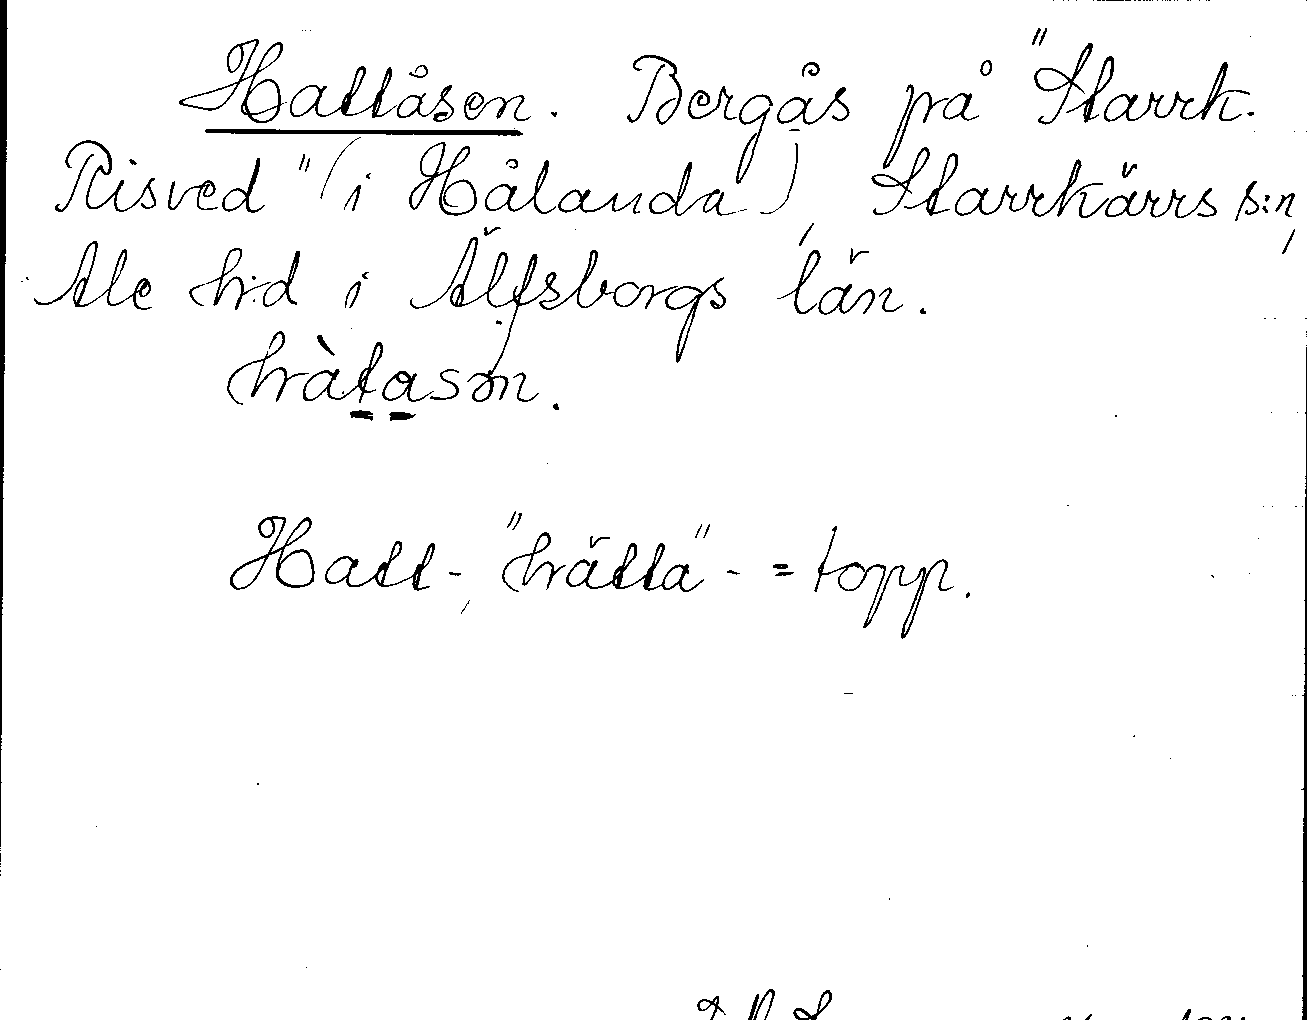 Hattåsen. Bergås på "Starrk.
Risved" (i Hålanda), Starrkärrs s:n,
Ale h:d i Älfsborgs län.
hàtasən.
Hatt-, "hätta"- = topp.